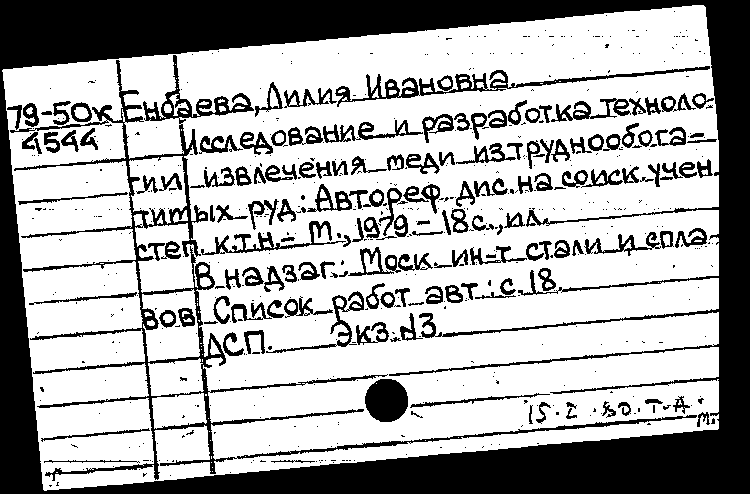 79-50к Енбаева, Лилия Ивановна.
4544 Исследование и разработка техноло-
гии извлечения меди из труднообога-
тимых руд: Автореф. дис. на соиск. учен.
степ. к.т.н. - М., 1979. - 18 с., ил.
В надзаг.: Моск. ин-т стали и спла-
вов Список работ авт.: с. 18.
ДСП. Экз. №3.